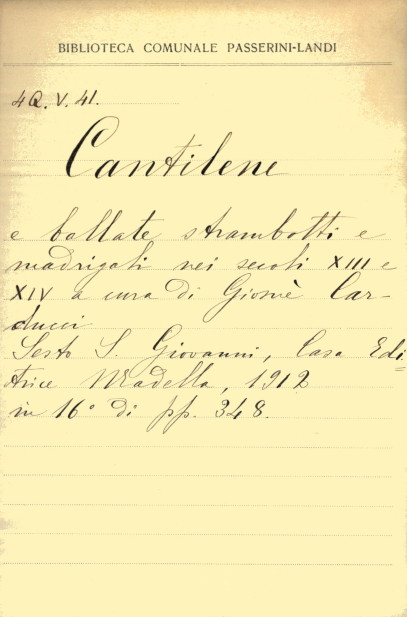 BIBLIOTECA COMUNALE PASSERINI-LANDI
4Q. V. 41.
Cantilene
e ballate strambotti e
madrigali nei secoli XIII e
XIV a cura di Giosuè Car-
ducci
Sesto S. Giovanni, Casa Edi=
trice Madella, 1912
in 16° di pp. 348.